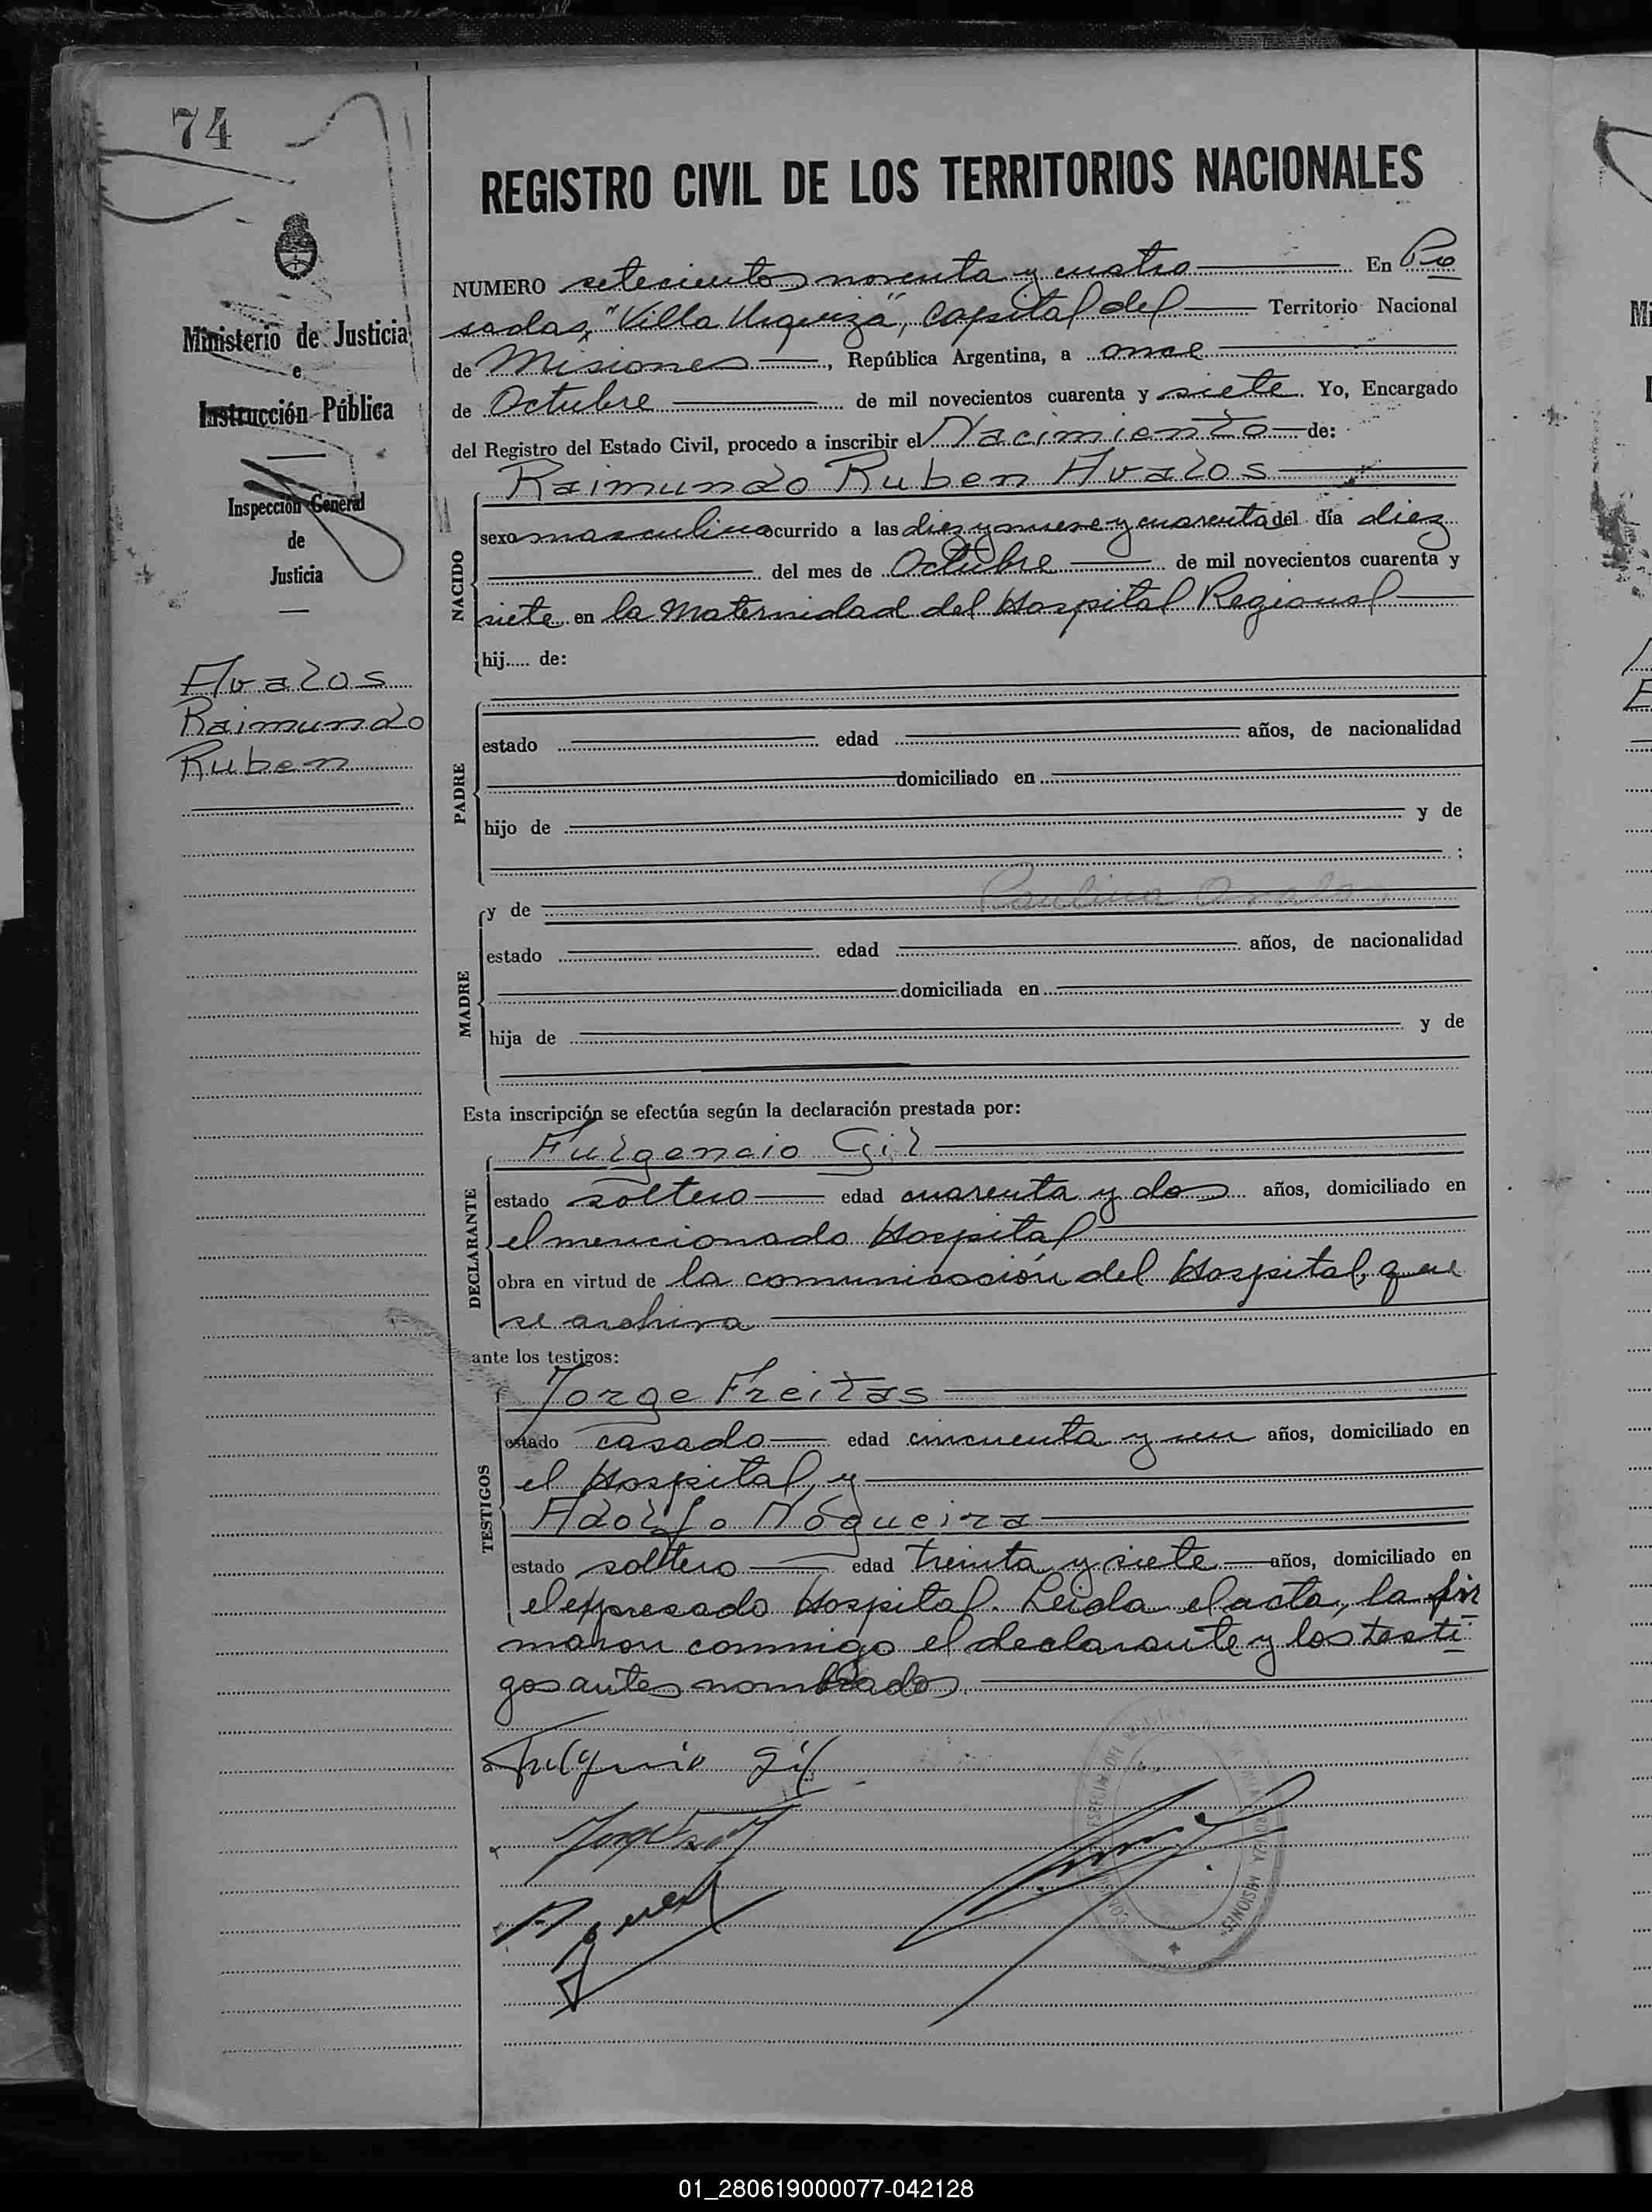 74
REGISTRO CIVIL DE LOS TERRITORIOS NACIONALES
Ministerio de Justicia
e
Instrucción Pública
Inspección General
de
Justicia
Avalos
Raimundo
Ruben
NUMERO setecientos noventa y cuatro En Po
sadas, "Villa Urquiza", Capital del Territorio Nacional
de Misiones, República Argentina, a once
de Octubre de mil novecientos cuarenta y siete. Yo, Encargado
del Registro del Estado Civil, procedo a inscribir el Nacimiento de:
Raimundo Ruben Avalos
NACIDO
sexo masculino ocurrido a las diez y nueve y cuarenta del día diez
del mes de Octubre de mil novecientos cuarenta y
siete en la Maternidad del Hospital Regional
hij..... de:
PADRE
estado edad años, de nacionalidad
domiciliado en
hijo de y de
;
MADRE
y de Paulina Avalos
estado edad años, de nacionalidad
domiciliada en
hija de y de
Esta inscripción se efectúa según la declaración prestada por:
DECLARANTE
Fulgencio Gil
estado soltero edad cuarenta y dos años, domiciliado en
el mencionado Hospital
obra en virtud de la comunicación del Hospital, que
se archiva
ante los testigos:
TESTIGOS
Jorge Freitas
estado casado edad cincuenta y un años, domiciliado en
el Hospital, y
Adolfo Nógueira
estado soltero edad treinta y siete años, domiciliado en
el expresado Hospital. Leida el acta, la fir
maron conmigo el declarante y los testi
gos antes nombrados.
Fulgencio Gil
MISIONES
01_280619000077-042128